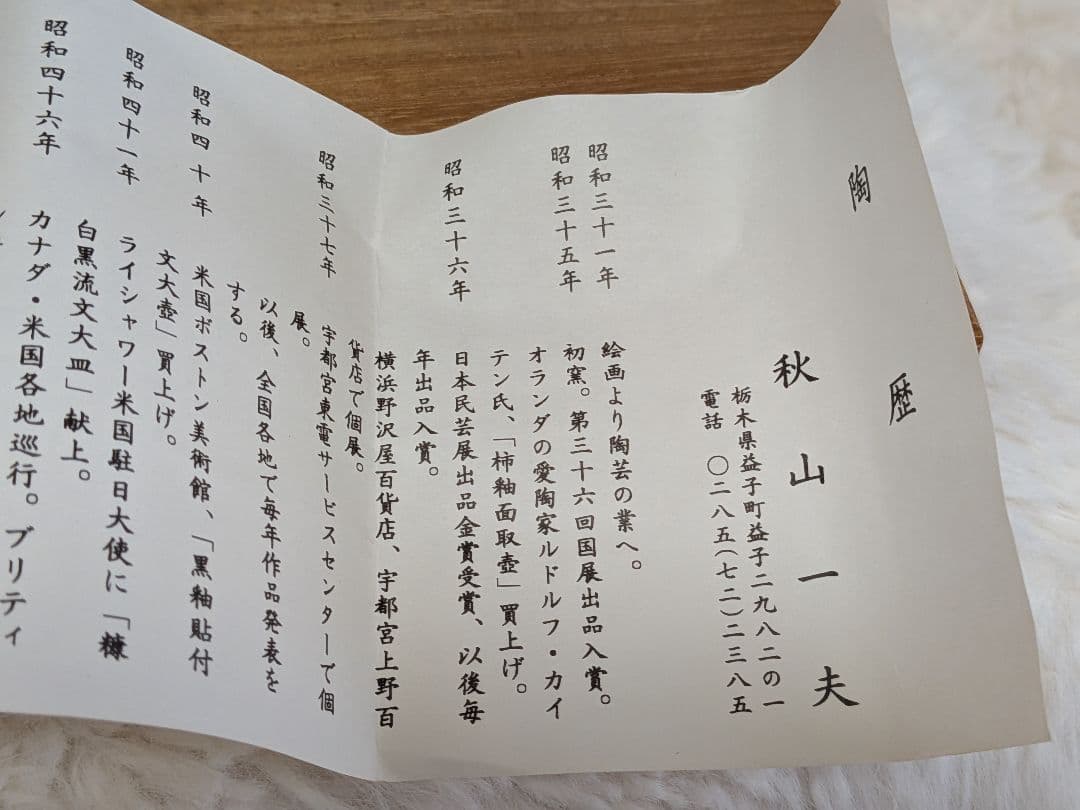 陶歴
秋山一夫
栃木県益子町益子二九八二の一
電話 〇二八五(七二)二三八五
昭和三十一年 絵画より陶芸の業へ。
昭和三十五年 初窯。第三十六回国展出品入賞。
オランダの愛陶家ルドルフ・カイ
テン氏、「柿釉面取壺」買上げ。
昭和三十六年 日本民芸展出品金賞受賞、以後毎
年出品入賞。
横浜野沢屋百貨店、宇都宮上野百
貨店で個展。
昭和三十七年 宇都宮東電サービスセンターで個
展。
以後、全国各地で毎年作品発表を
する。
昭和四十年 米国ボストン美術館、「黒釉貼付
文大壺」買上げ。
昭和四十一年 ライシャワー米国駐日大使に「糠
白黒流文大皿」献上。
昭和四十六年 カナダ・米国各地巡行。ブリティ